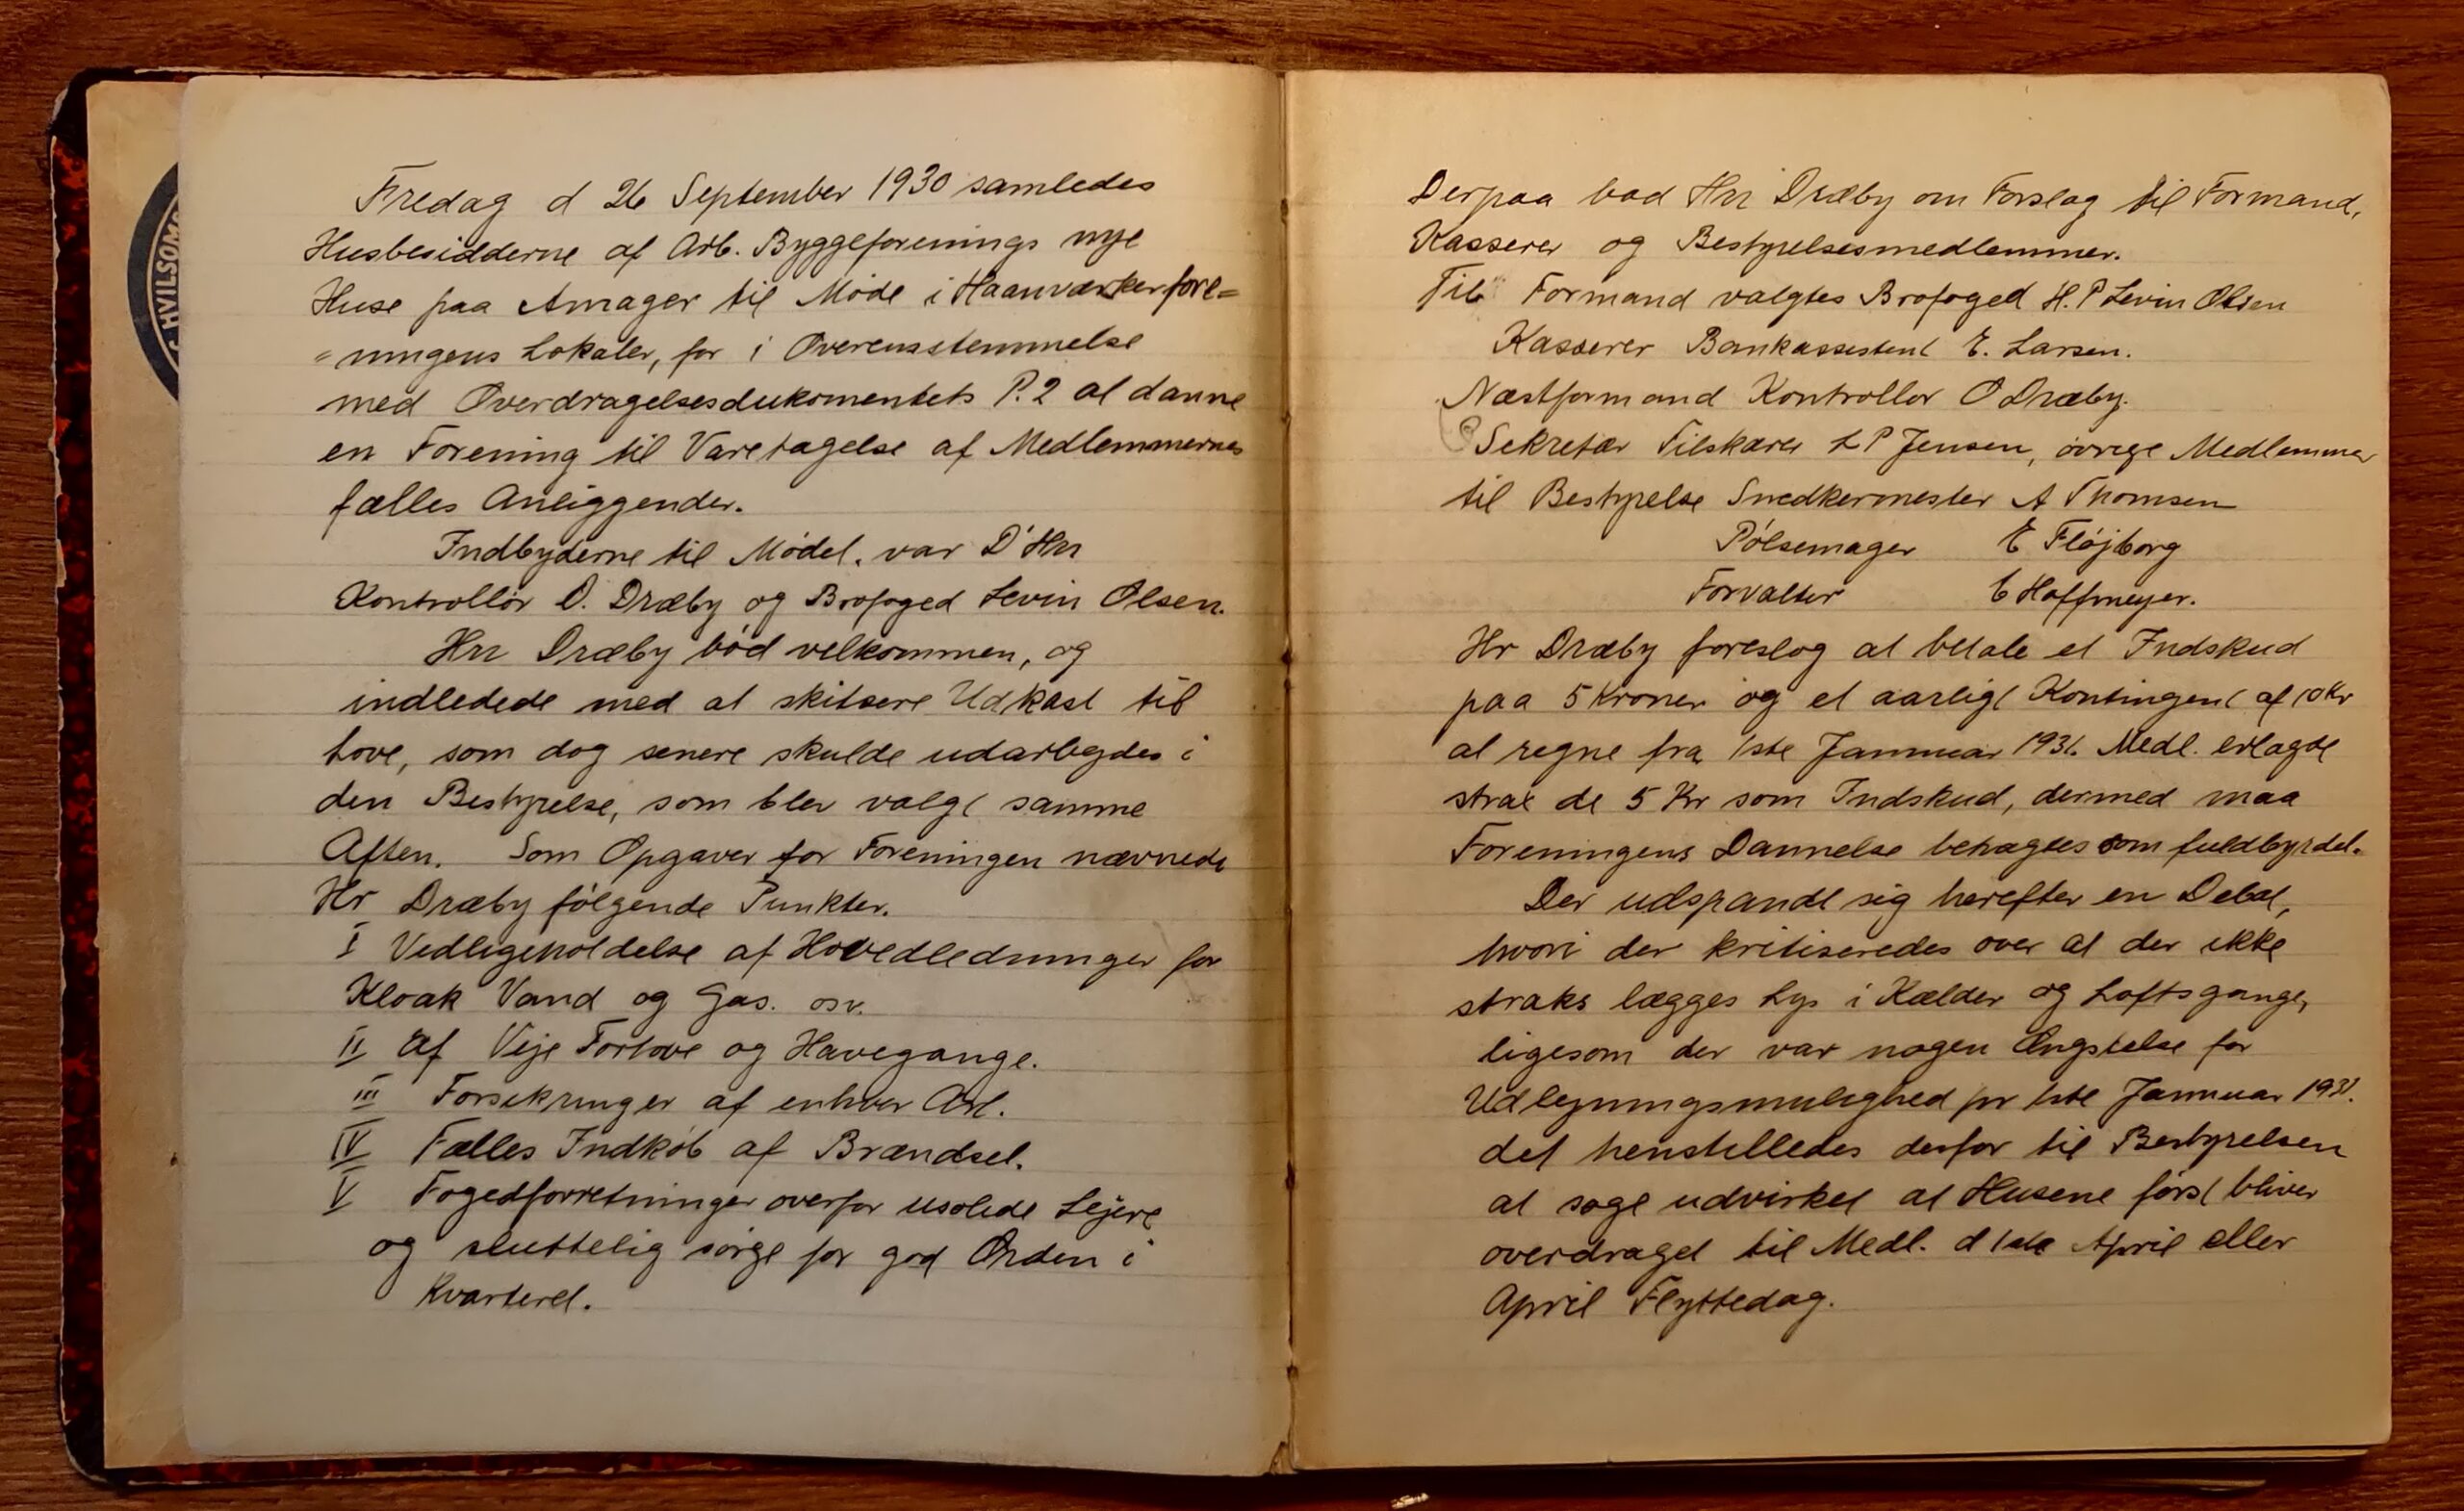 HVILSOM
Fredag d 26 September 1930 samledes
Husbesidderne af Arb. Byggeforenings nye
Huse paa Amager til Møde i Haanværkerfore=
=ningens Lokaler, for i Overensstemmelse
med Overdragelsesdukomentets P. 2 at danne
en Forening til Varetagelse af Medlemmernes
fælles Anliggender.
Indbyderne til Mødet. var D'Hrr
Kontrollør O. Dræby og Brofoged Levin Olsen.
Hrr Dræby bød velkommen, og
indledede med at skitsere Udkast til
Love, som dog senere skulde udarbejdes i
den Bestyrelse, som blev valgt samme
Aften. Som Opgaver for Foreningen nævnede
Hr Dræby følgende Punkter.
I Vedligeholdelse af Hovedledninger for
Kloak Vand og Gas. osv.
II af Veje Fortove og Havegange.
III Forsikringer af enhver Art.
IV Fælles Indkøb af Brændsel.
V Fogedforretninger overfor usolide Lejere
og sluttelig sørge for god Orden i
Kvarteret.
Derpaa bad Hrr Dræby om Forslag til Formand,
Kasserer og Bestyrelsesmedlemmer.
Til Formand valgtes Brofoged H. P Levin Olsen
Kasserer Bankassistent E. Larsen.
Næstformand Kontrollør O Dræby.
Sekretær Tilskærer L P Jensen, øvrige Medlemmer
til Bestyrelse Snedkermester A Thomsen
Pølsemager E Fløjborg
Forvalter C Hoffmeyer.
Hr Dræby foreslog at betale et Indskud
paa 5 Kroner og et aarligt Kontingent af 10 Kr
at regne fra 1ste Januar 1931. Medl. erlagde
strax de 5 Kr som Indskud, dermed maa
Foreningens Dannelse betragtes som fuldbyrdet.
Der udspandt sig herefter en Debat,
hvori der kritiseredes over at der ikke
straks lægges Lys i Kælder og Loftsgange,
ligesom der var nogen Ængstelse for
Udlejningsmulighed pr 1ste Januar 1931.
det henstilledes derfor til Bestyrelsen
at søge udvirket at Husene først bliver
overdraget til Medl. d 1ste April eller
April Flyttedag.